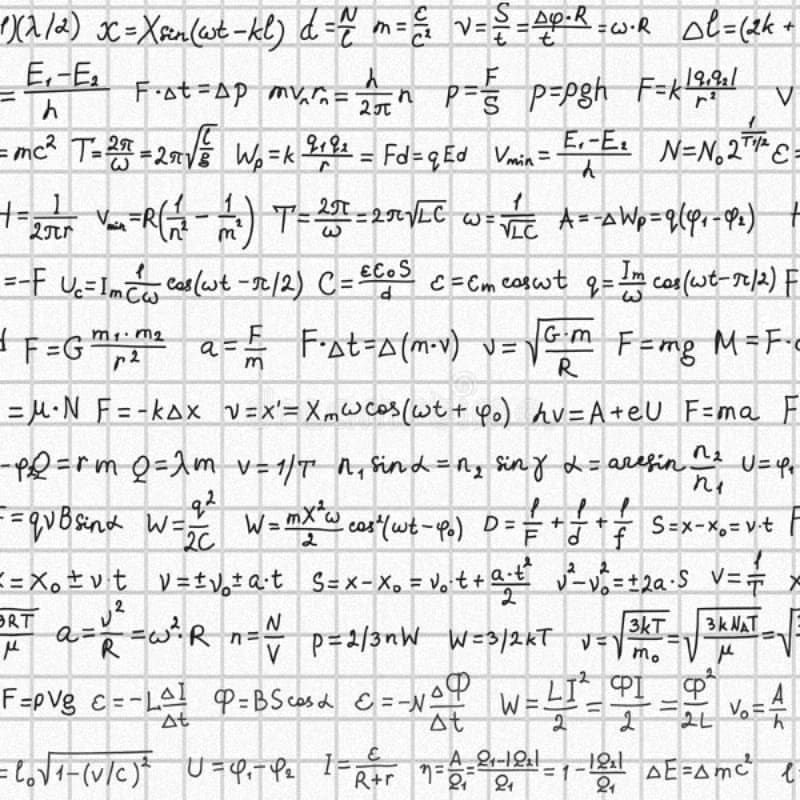 )(λ/2) x=Xsin(ωt-kl) d=N/l m=ε/c² v=S/t=Δφ·R/t=ω·R Δl=(2k+
=E₁-E₂/h F·Δt=Δp mvₙrₙ=h/2π n p=F/S p=ρgh F=k|q₁q₂|/r² v
=mc² T=2π/ω=2π√l/g Wₚ=k q₁q₂/r = Fd=qEd Vmin=E₁-E₂/h N=N₀2^1/T1/2 ε=
H=1/2πr Vmin=R(1/n²-1/m²) T=2π/ω=2π√LC ω=1/√LC A=-ΔWp=q(φ₁-φ₂)
=-F Uc=Im 1/Cω cos(ωt-π/2) C=εε₀S/d ε=εm cosωt q=Im/ω cos(ωt-π/2) F
F=G m₁·m₂/r² a=F/m F·Δt=Δ(m·v) v=√G·m/R F=mg M=F·
=μ·N F=-kΔx v=x'=Xmωcos(ωt+φ₀) hv=A+eU F=ma F
-φ₂ Q=rm Q=λm v=1/T n₁ sinα=n₂ sinγ α=arcsin n₂/n₁ U=φ₁
F=qvBsinα W=q²/2C W=mX²ω/2 cos²(ωt-φ₀) D=1/F+1/d+1/f S=x-x₀=v·t F
x=x₀±v·t v=±v₀±a·t S=x-x₀=v₀·t+a·t²/2 v²-v₀²=±2a·S V=1/T x
3RT/μ a=v²/R=ω²·R n=N/V p=2/3nW W=3/2kT v=√3kT/m₀=√3kNAT/μ=√3
F=ρVg ε=-LΔI/Δt Φ=BScosα ε=-NΔΦ/Δt W=LI²/2=ΦI/2=Φ²/2L v₀=A/h
=l₀√1-(v/c)² U=φ₁-φ₂ I=ε/R+r η=A/Q₁=Q₁-|Q₂|/Q₁=1-|Q₂|/Q₁ ΔE=Δmc² l